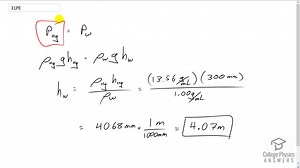 31PE
P_ng = P_w
ρ_ng g h_ng = ρ_w g h_w
h_w = ρ_ng h_ng / ρ_w = (13.56 g/mL)(300 mm) / 1.00 g/mL
= 4068 mm · 1 m / 1000 mm = 4.07 m
College Physics
ANSWERS